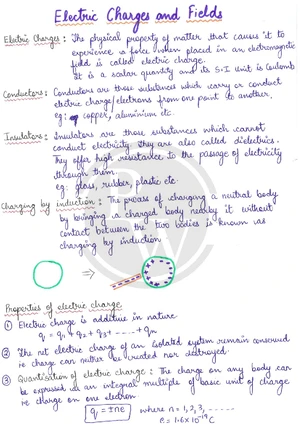 Electric Charges and Fields
Electric Charges : The physical property of matter that causes it to
experience a force when placed in an electromagnetic
field is called electric charge.
It is a scalar quantity and its S.I unit is Coulomb
Conductors : Conductors are those substances which carry or conduct
electric charge/electrons from one point to another,
eg: copper, aluminium etc.
Insulators : Insulators are those substances which cannot
conduct electricity. They are also called dielectrics.
They offer high resistance to the passage of electricity
through them.
eg: glass, rubber, plastic etc
Charging by induction : The process of charging a neutral body
by bringing a charged body nearby it without
contact between the two bodies is known as
charging by induction
Properties of electric charge
① Electric charge is additive in nature
q = q₁ + q₂ + q₃ + ---- + qn
② The net electric charge of an isolated system remain conserved
ie charge can neither be created nor destroyed.
③ Quantisation of electric charge : The charge on any body can
be expressed as an integral multiple of basic unit of charge
ie charge on one electron
q = ±ne where n = 1, 2, 3, -----
e = 1.6×10⁻¹⁹ C